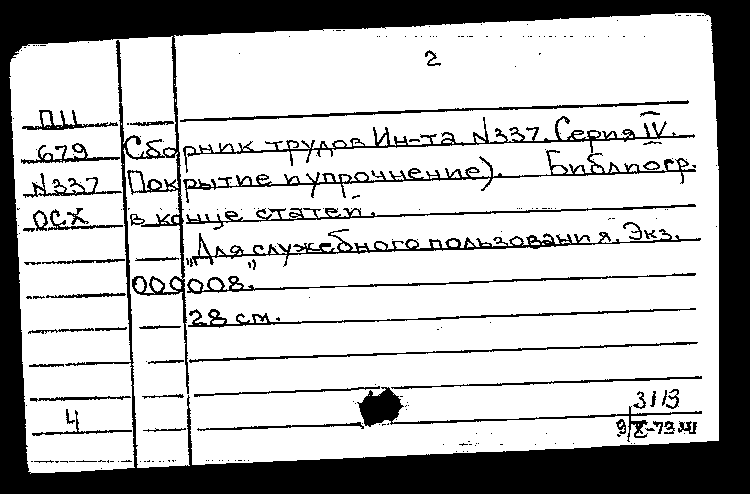 2
П11
679 Сборник трудов Ин-та. N337. Серия IV.
N337 Покрытие и упрочнение). Библиогр.
ОСХ в конце статей.
„Для служебного пользования. Экз.
000008."
28 см.
4
311В
9/X-73